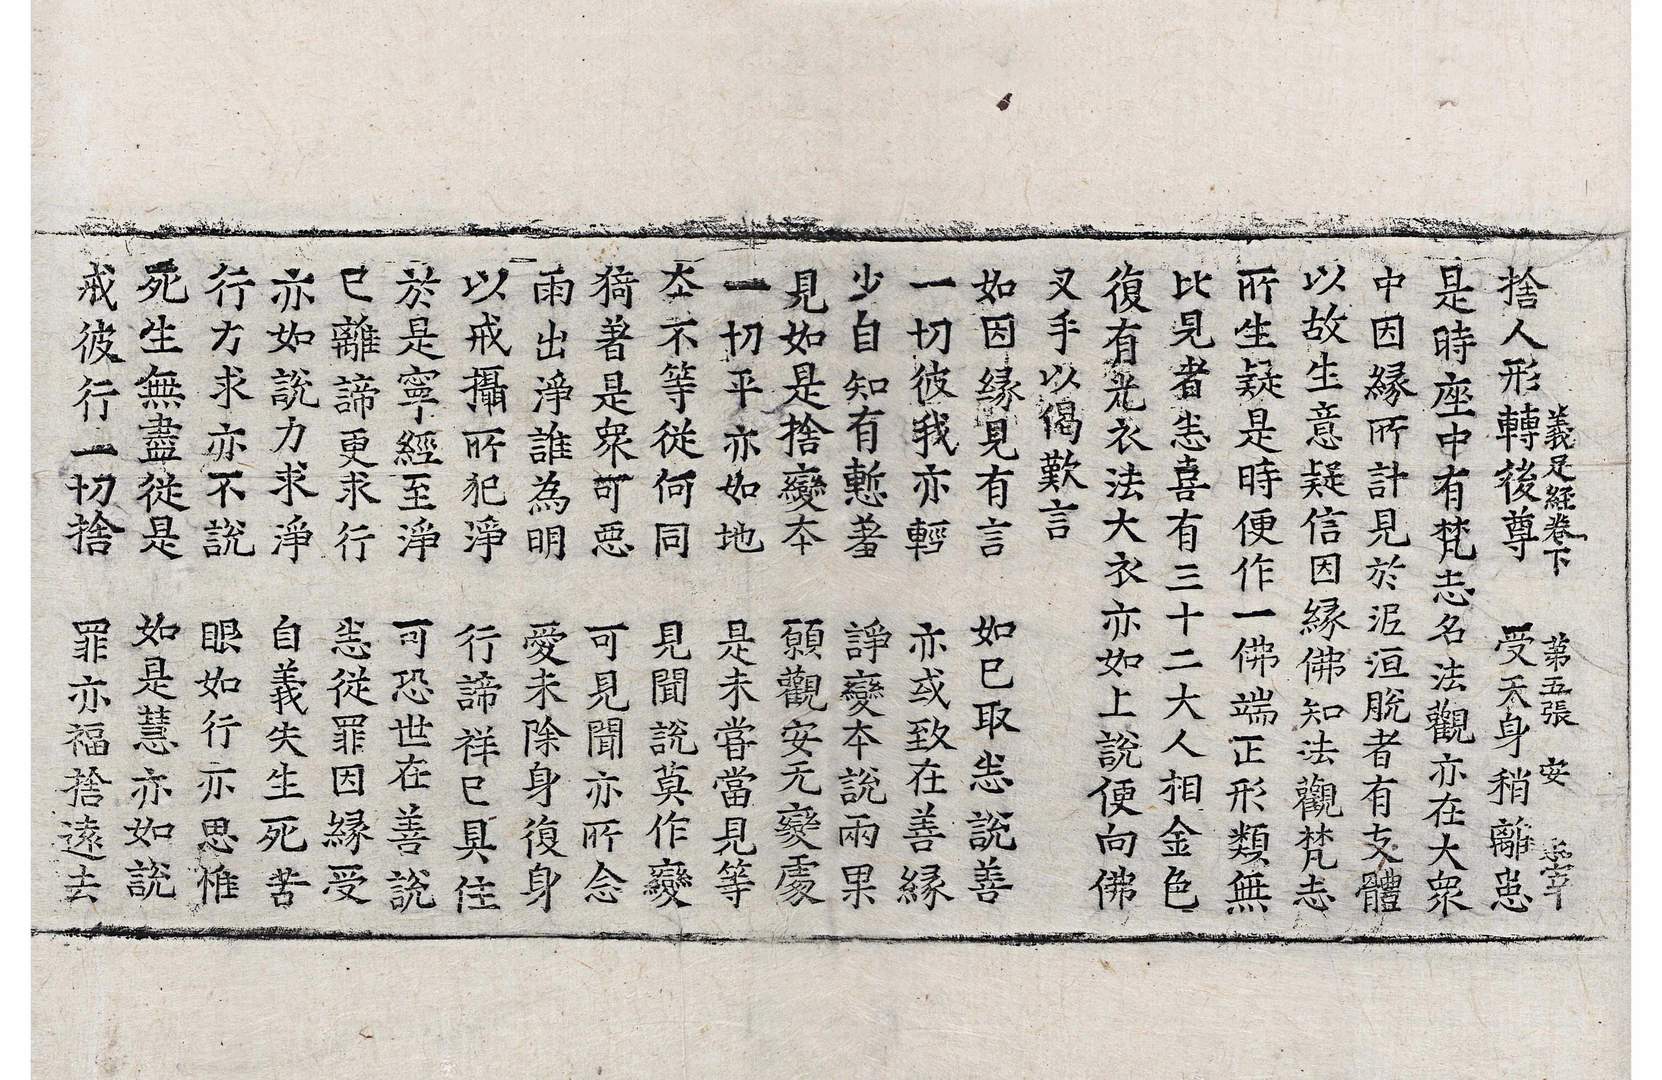 義足經卷下 第五張 安
捨人形轉後尊 受天身稍離患
是時座中有梵志名法觀亦在大眾
中因緣所計見於泥洹脫者有支體
以故生意疑信因緣佛知法觀梵志
所生疑是時便作一佛端正形類無
比見者悉喜有三十二大人相金色
復有光衣法大衣亦如上說便向佛
叉手以偈歎言
如因緣見有言 如已取悉說善
一切彼我亦輕 亦或致在善緣
少自知有慙羞 諍變本說兩果
見如是捨變本 願觀安无變處
一切平亦如地 是未嘗當見等
本不等從何同 見聞說莫作變
猗著是眾可惡 可見聞亦所念
雨出淨誰為明 愛未除身復身
以戒攝所犯淨 行諦祥已具住
於是寧經至淨 可恐世在善說
已離諦更求行 悉從罪因緣受
亦如說力求淨 自義失生死苦
行力求亦不說 眼如行亦思惟
死生無盡從是 如是慧亦如說
戒彼行一切捨 罪亦福捨遠去